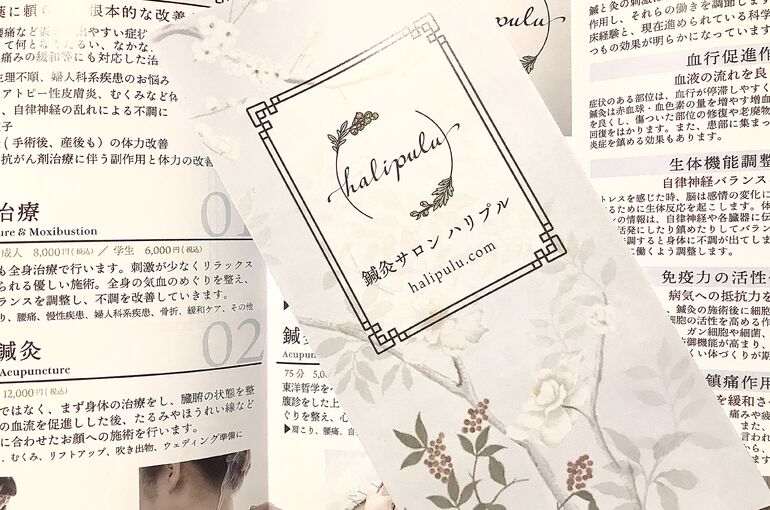 根本的な改善
て何となくだるい、なかな
痛みの緩和等にも対応した治
生理不順、婦人科系疾患のお悩み
アトピー性皮膚炎、むくみなど体
自律神経の乱れによる不調に
(手術後、産後も)の体力改善
抗がん剤治療に伴う副作用と体力の改善
治療
01
ure & Moxibustion
成人 8,000円(税込) / 学生 6,000円(税込)
も全身治療で行います。刺激が少なくリラックス
られる優しい施術。全身の気血のめぐりを整え、
ランスを調整し、不調を改善していきます。
り、腰痛、慢性疾患、婦人科系疾患、骨折、緩和ケア、その他
鍼灸
02
Acupuncture
12,000円(税込)
ではなく、まず身体の治療をし、臓腑の状態を整
の血流を促進した後、たるみやほうれい線など
に合わせたお顔への施術を行います。
、むくみ、リフトアップ、吹き出物、ウェディング準備に
halipulu
鍼灸サロン ハリプル
halipulu.com
pulu
鍼
Acupun
75分 5,0
東洋哲学を
腹診をした上
ぐりを整え、心
▶肩こり、腰痛、自
鍼と灸の刺激
作用し、それらの働きを調節しま
床経験と、現在進められている科学
つもの効果が明らかになっています
血行促進作
血液の流れを良
症状のある部位は、血行が停滞しやすく
鍼灸は赤血球・血色素の量を増やす増血
を良くし、傷ついた部位の修復や老廃物
回復をはかります。また、患部に集まっ
炎症を鎮める効果もあります。
生体機能調整
自律神経バランス
トレスを感じた時、脳は感情の変化に
るために生体反応を起こします。体
の情報は、自律神経や各臓器に伝
活発にしたり鎮めたりしてバラン
調すると身体に不調が出てしま
に働くよう調整します。
免疫力の活性
病気への抵抗力を
、鍼灸の施術後に細胞
細胞の活性を高める作
ガン細胞や細菌、
防御機能が高まり、
くい体づくりが期
鎮痛作用
を緩和さ